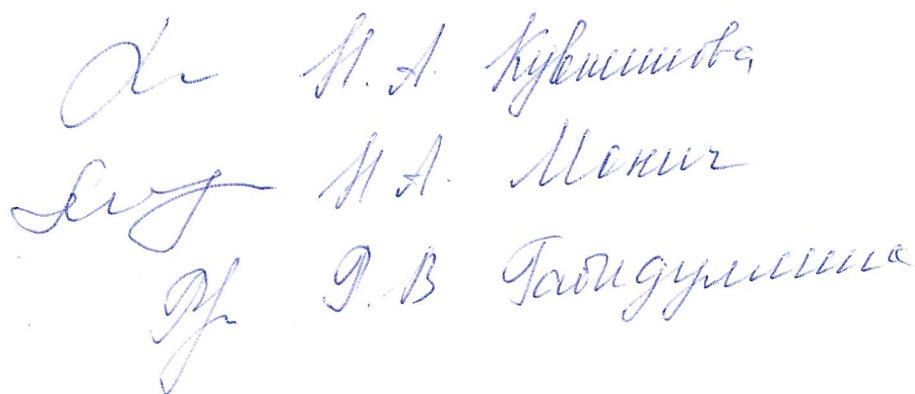 Н. А. Кувшинова
Н А. Монич
Р. В Габидуллина